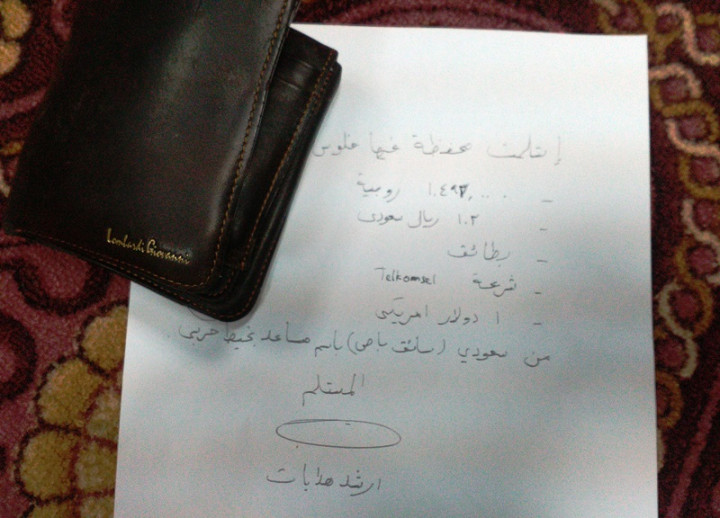 Lombardi Giovanni
إستلمت محفظة فيها فلوس
- ١.٤٩٣,٠٠٠ روبية
- ١٠٢ ريال سعودي
- بطائق
- شريحة Telkomsel
- ١ دولار امريكي
من سعودي (سائق باص) باسم مساعد بخيط حربي
المستلم
ارشد هدايات